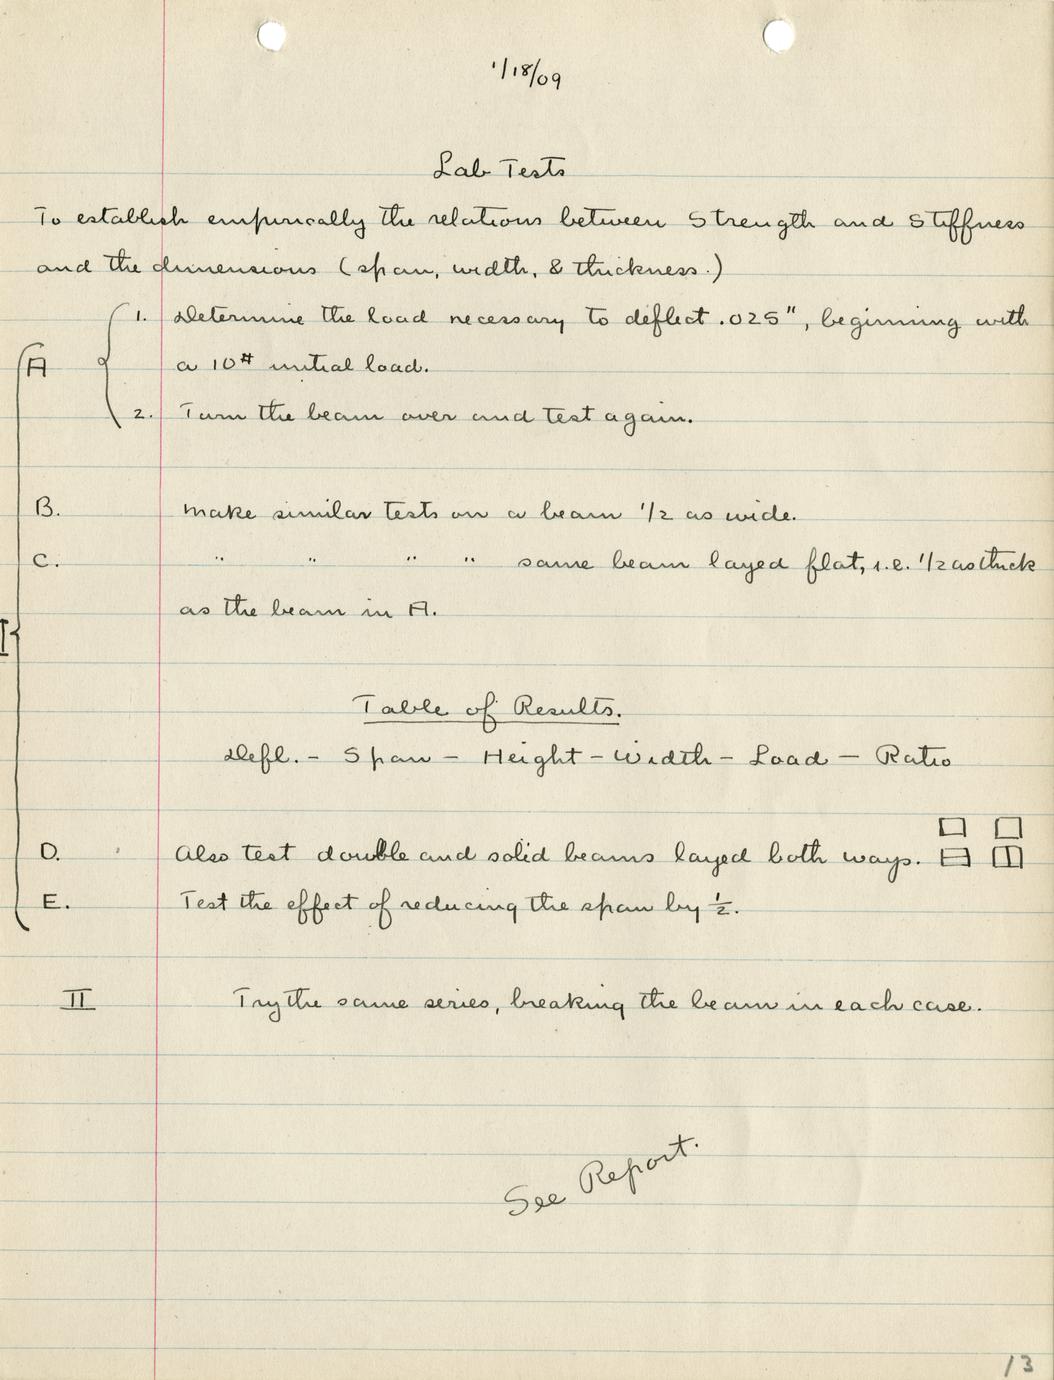 1/18/09
Lab Tests
To establish empirically the relations between Strength and Stiffness
and the dimensions (span, width, & thickness.)
1. Determine the load necessary to deflect .025", beginning with
A a 10# initial load.
2. Turn the beam over and test again.
B. Make similar tests on a beam 1/2 as wide.
C. " " " " same beam layed flat, i.e. 1/2 as thick
as the beam in A.
I
Table of Results.
Defl. - Span - Height - Width - Load - Ratio
D. Also test double and solid beams layed both ways.
E. Test the effect of reducing the span by 1/2.
II Try the same series, breaking the beam in each case.
See Report.
13